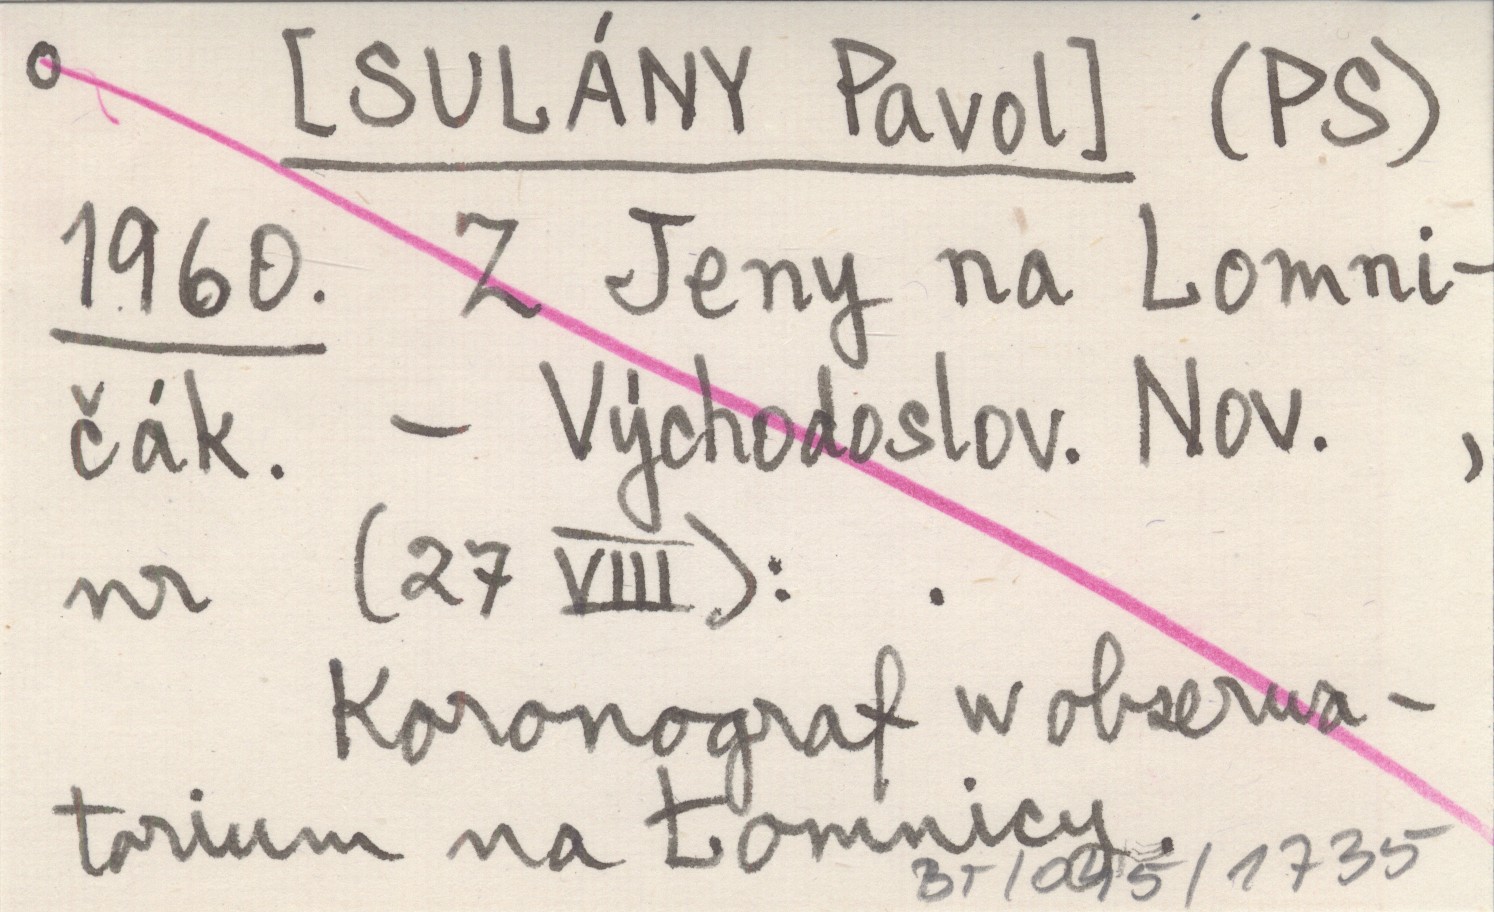 [SULÁNY Pavol] (PS)
1960. Z Jeny na Lomni-
čák. – Východoslov. Nov. ,
nr (27 VIII): .
Koronograf w obserwa-
torium na Łomnicy.